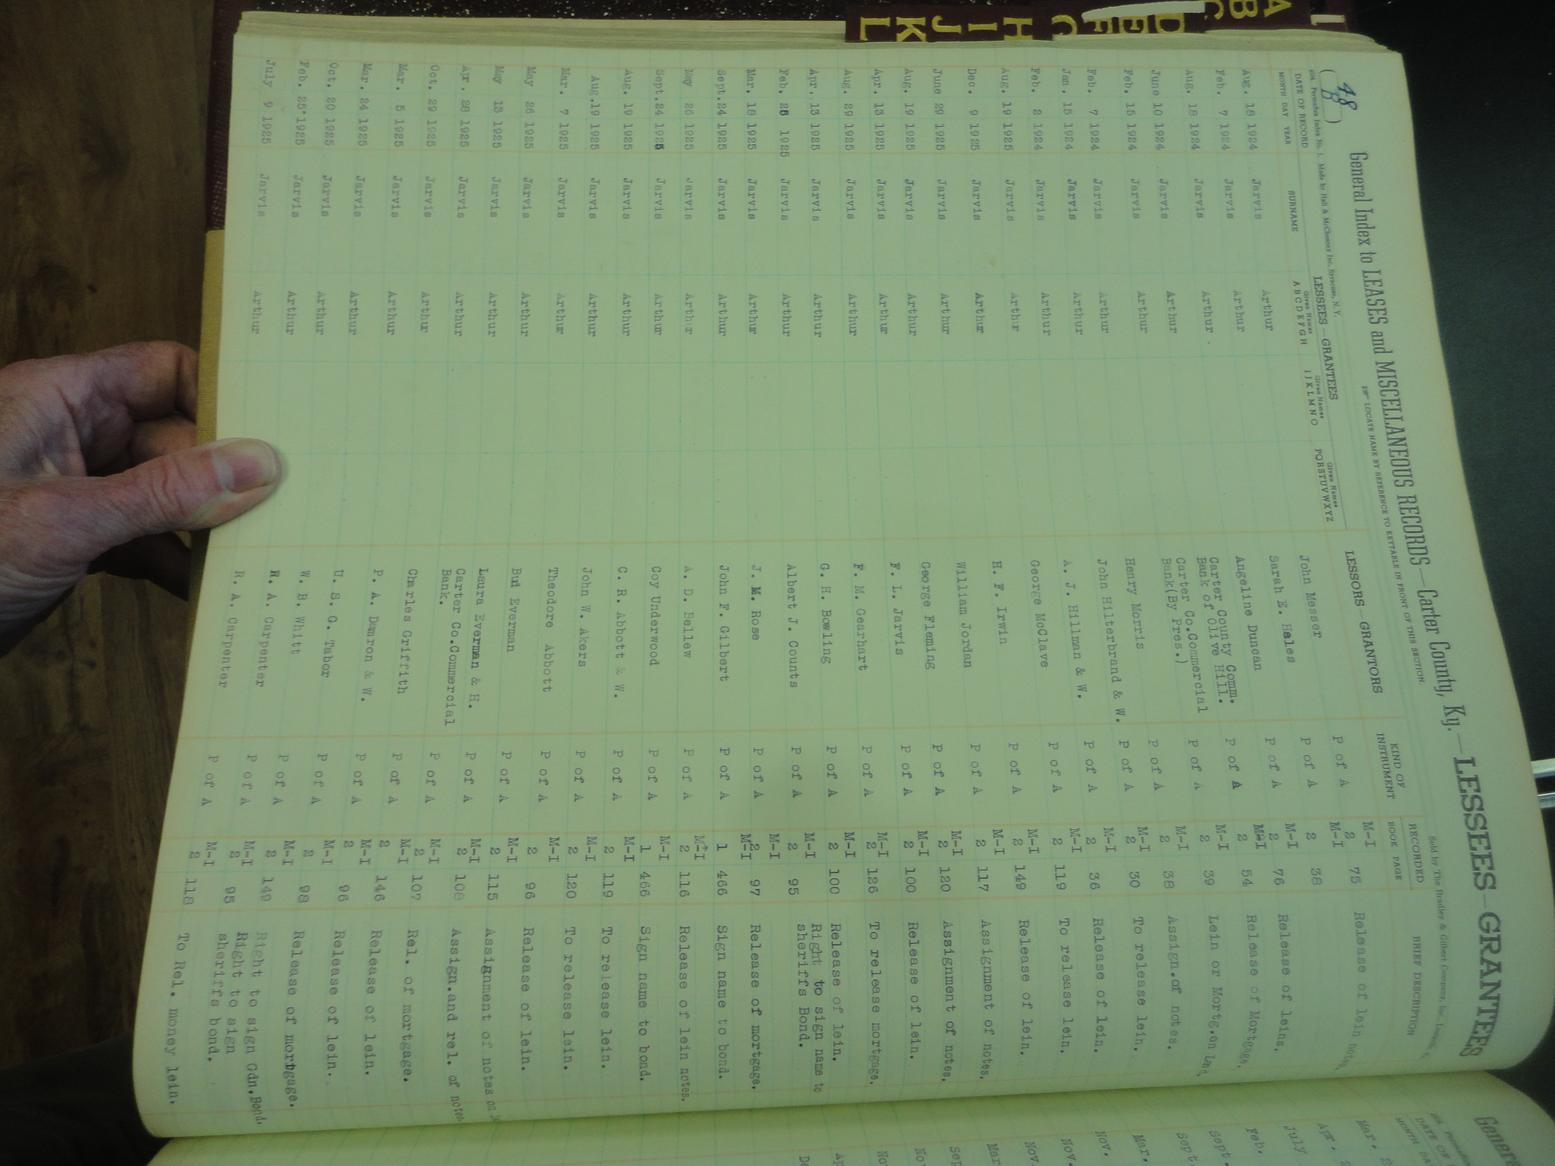 A B C D E F G H I J K L
48
General Index to LEASES and MISCELLANEOUS RECORDS—Carter County, Ky.—LESSEES—GRANTEES
LOCATE NAME BY REFERENCE TO KEYTABLE IN FRONT OF THIS SECTION.
DATE OF RECORD LESSEES—GRANTEES LESSORS—GRANTORS KIND OF INSTRUMENT RECORDED BRIEF DESCRIPTION
MONTH DAY YEAR SURNAME Given Names ABCDEFGH Given Names IJKLMNO Given Names PQRSTUVWXYZ BOOK PAGE
Aug. 18 1924 Jarvis Arthur John Messer P of A M-I 2 75 Release of lein notes
Feb. 7 1924 Jarvis Arthur Sarah E. Hales P of A M-I 2 38
Aug. 18 1924 Jarvis Arthur Angeline Duncan P of A M-I 2 76 Release of leins.
June 10 1924 Jarvis Arthur Carter County Comm. Bank of Olive Hill. P of A M-I 2 54 Release of Mortgage.
Feb. 15 1924 Jarvis Arthur Carter Co.Commercial Bank(By Pres.) P of A M-I 2 39 Lein or Mortg.on
Feb. 7 1924 Jarvis Arthur Henry Morris P of A M-I 2 38 Assign.of notes.
Jan. 15 1924 Jarvis Arthur John Hilterbrand & W. P of A M-I 2 30 To release lein.
Feb. 2 1924 Jarvis Arthur A. J. Hillman & W. P of A M-I 2 36 Release of lein.
Aug. 19 1925 Jarvis Arthur George McClave P of A M-I 2 119 To release lein.
Dec. 9 1925 Jarvis Arthur H. F. Irwin P of A M-I 2 149 Release of lein.
June 29 1925 Jarvis Arthur William Jordan P of A M-I 2 117 Assignment of notes.
Aug. 19 1925 Jarvis Arthur George Fleming P of A M-I 2 120 Assignment of notes.
Apr. 13 1925 Jarvis Arthur F. L. Jarvis P of A M-I 2 100 Release of lein.
Aug. 29 1925 Jarvis Arthur F. M. Gearhart P of A M-I 2 126 To release mortgage.
Apr. 13 1925 Jarvis Arthur G. H. Bowling P of A M-I 2 100 Release of lein.
Feb. 25 1925 Jarvis Arthur Albert J. Counts P of A M-I 2 95 Right to sign name to sheriffs Bond.
Mar. 18 1925 Jarvis Arthur J. M. Rose P of A M-I 2 97 Release of mortgage.
Sept.24 1925 Jarvis Arthur John F. Gilbert P of A M-I 1 466 Sign name to bond.
May 26 1925 Jarvis Arthur A. D. Bellew P of A M-I 2 116 Release of lein notes.
Sept.24 1925 Jarvis Arthur Coy Underwood P of A M-I 1 466 Sign name to bond.
Aug. 19 1925 Jarvis Arthur C. R. Abbott & W. P of A M-I 2 119 To release lein.
Aug.19 1925 Jarvis Arthur John W. Akers P of A M-I 2 120 To release lein.
Mar. 7 1925 Jarvis Arthur Theodore Abbott P of A M-I 2 96 Release of lein.
May 26 1925 Jarvis Arthur Bud Everman P of A M-I 2 115 Assignment of notes on
May 13 1925 Jarvis Arthur Laura Everman & H. P of A M-I 2 108 Assign.and rel. of notes
Apr. 28 1925 Jarvis Arthur Carter Co.Commercial Bank. P of A M-I 2 107 Rel. of mortgage.
Oct. 29 1925 Jarvis Arthur Charles Griffith P of A M-I 2 146 Release of lein.
Mar. 5 1925 Jarvis Arthur P. A. Damron & W. P of A M-I 2 96 Release of lein.
Mar. 24 1925 Jarvis Arthur U. S. G. Tabor P of A M-I 2 98 Release of mortgage.
Oct. 20 1925 Jarvis Arthur W. B. Whitt P of A M-I 2 149 Right to sign Gdn.Bond.
Feb. 25 1925 Jarvis Arthur R. A. Carpenter P of A M-I 2 95 Right to sign sheriffs bond.
July 9 1925 Jarvis Arthur R. A. Carpenter P of A M-I 2 118 To Rel. money lein.